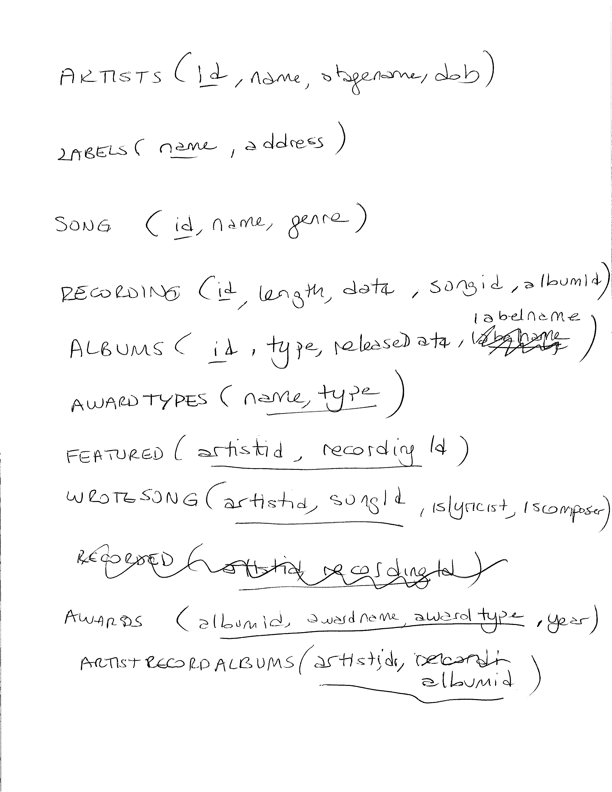 ARTISTS (id, name, stagename, dob)
LABELS (name, address)
SONG (id, name, genre)
RECORDING (id, length, data, songid, albumid)
labelname
ALBUMS (id, type, releaseData, labelname)
AWARDTYPES (name, type)
FEATURED (artistid, recordingId)
WROTESONG (artistid, songId, islyricist, iscomposer)
RECORDED (artistid, recordingId)
AWARDS (albumid, awardname, awardtype, year)
ARTISTRECORDALBUMS (artistids, recordin
albumid)